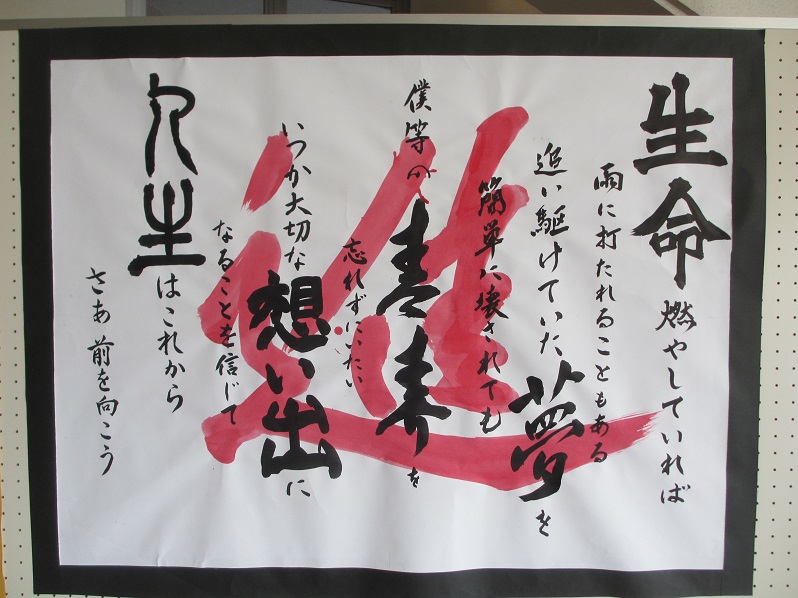 生命燃やしていれば
雨に打たれることもある
追い駆けていた夢を
簡単に壊されても
僕等の青春を
忘れずにいたい
いつか大切な想い出に
なることを信じて
人生はこれから
さあ前を向こう
進